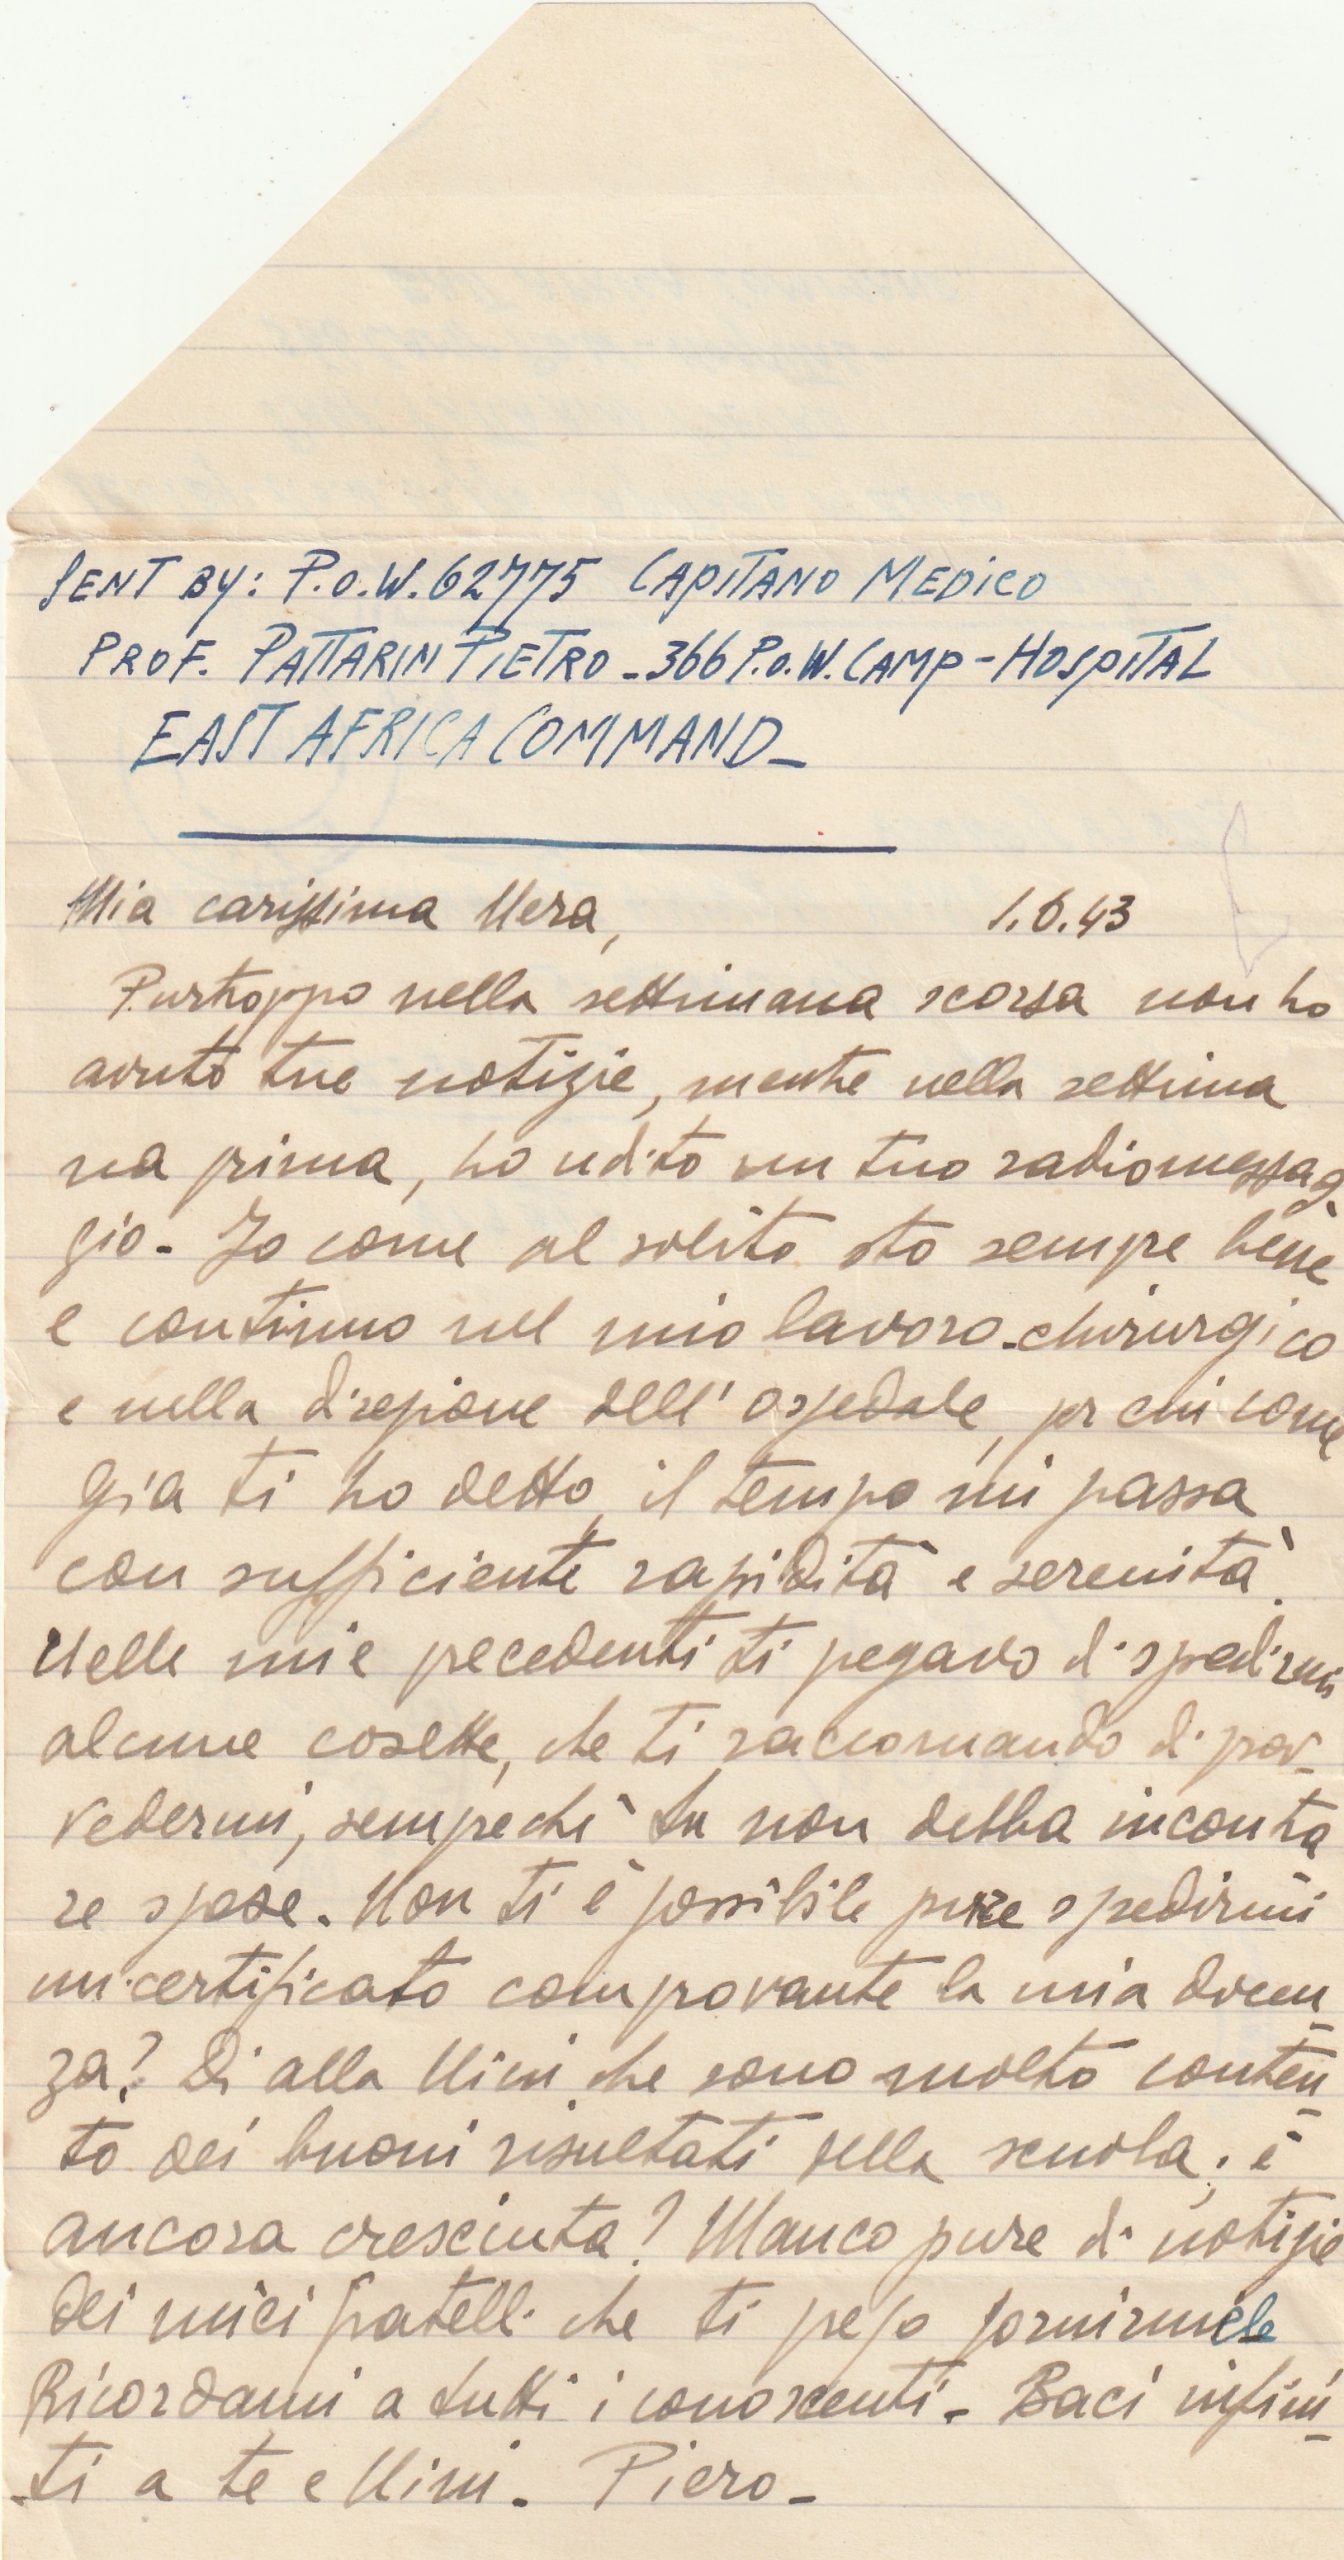 SENT BY: P.O.W. 62775 CAPITANO MEDICO
PROF. PATTARIN PIETRO - 366 P.O.W. CAMP - HOSPITAL
EAST AFRICA COMMAND -
Mia carissima Nera, 1.6.43
Purtroppo nella settimana scorsa non ho
avuto tue notizie, mentre nella settima
na prima, ho udito un tuo radiomessag
gio - Io come al solito sto sempre bene
e continuo nel mio lavoro - chirurgico
e nella direzione dell'ospedale, per cui come
già ti ho detto, il tempo mi passa
con sufficiente rapidità e serenità.
Nelle mie precedenti ti pregavo di spedirmi
alcune cosette, che ti raccomando di prov-
vedermi, sempreché tu non debba incontra
re spese. Non ti è possibile pure spedirmi
un certificato comprovante la mia docen-
za? Di alla Nini che sono molto conten-
to dei buoni risultati della scuola; è
ancora cresciuta? Manco pure di notizie
dei miei fratelli che ti prego fornirmele
Ricordami a tutti i conoscenti - Baci infini-
-ti a te e Nini. Piero -